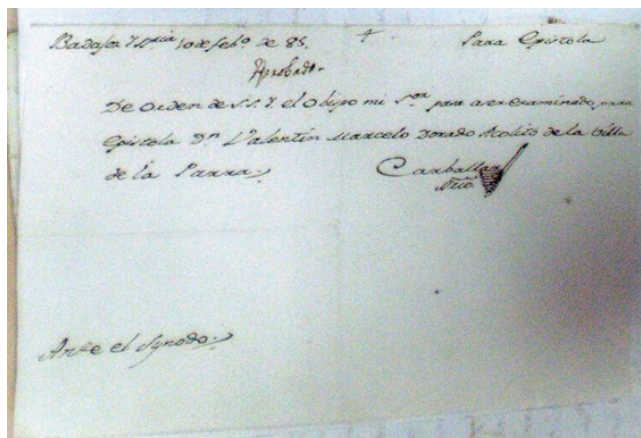 Badajoz y 10 de feb.º de 85. + Para Epistola
Aprobado.
De orden de S.S.Y. el Obispo mi S.or pasa a ser examinado, para
Epistola D.n Valentin Marcelo Dorado Acolito de la Villa
de la Parra.
Carballar
Srio.
Ante el Synodo.